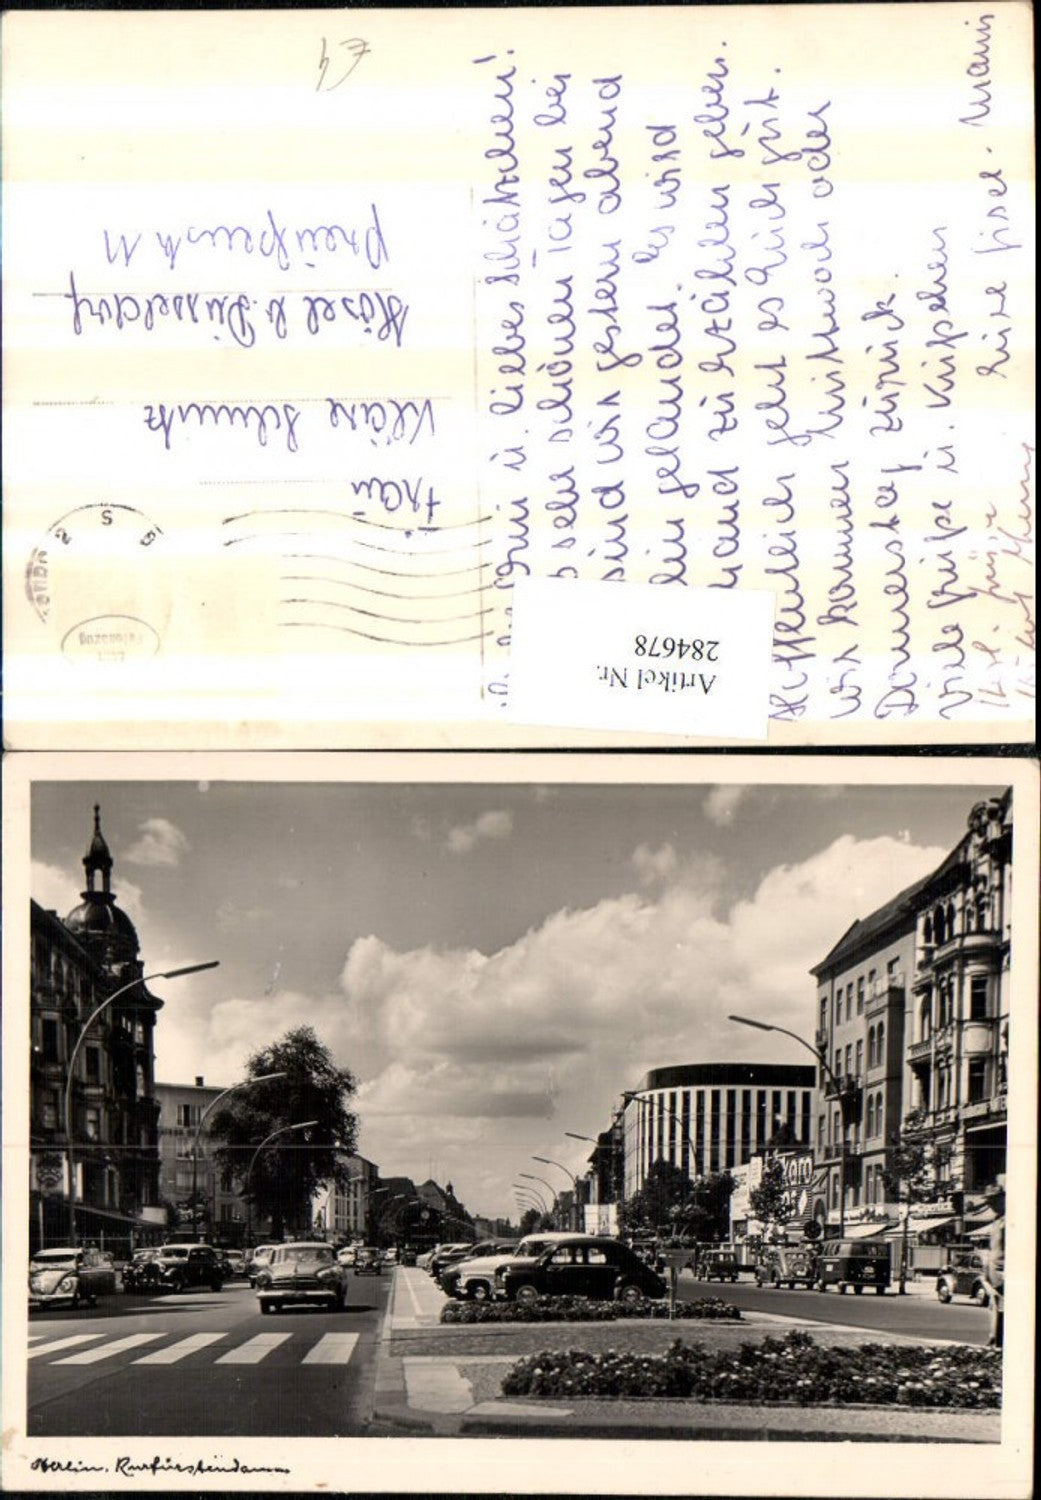 Frau
Kläre Schmitz
Hösel b. Düsseldorf
Preußenstr 11
Omi u. liebes Schätzchen!
sehr schönen Tagen bei
sind wir gestern abend
lin gelandet. Es wird
zu erzählen geben.
Hoffentlich geht es Euch gut.
Wir kommen Mittwoch oder
Donnerstag zurück.
Viele Grüße u. Küßchen
Eure Gisel. Mann
Herzl. Grüße
Artikel Nr.
284678
Berlin. Kurfürstendamm